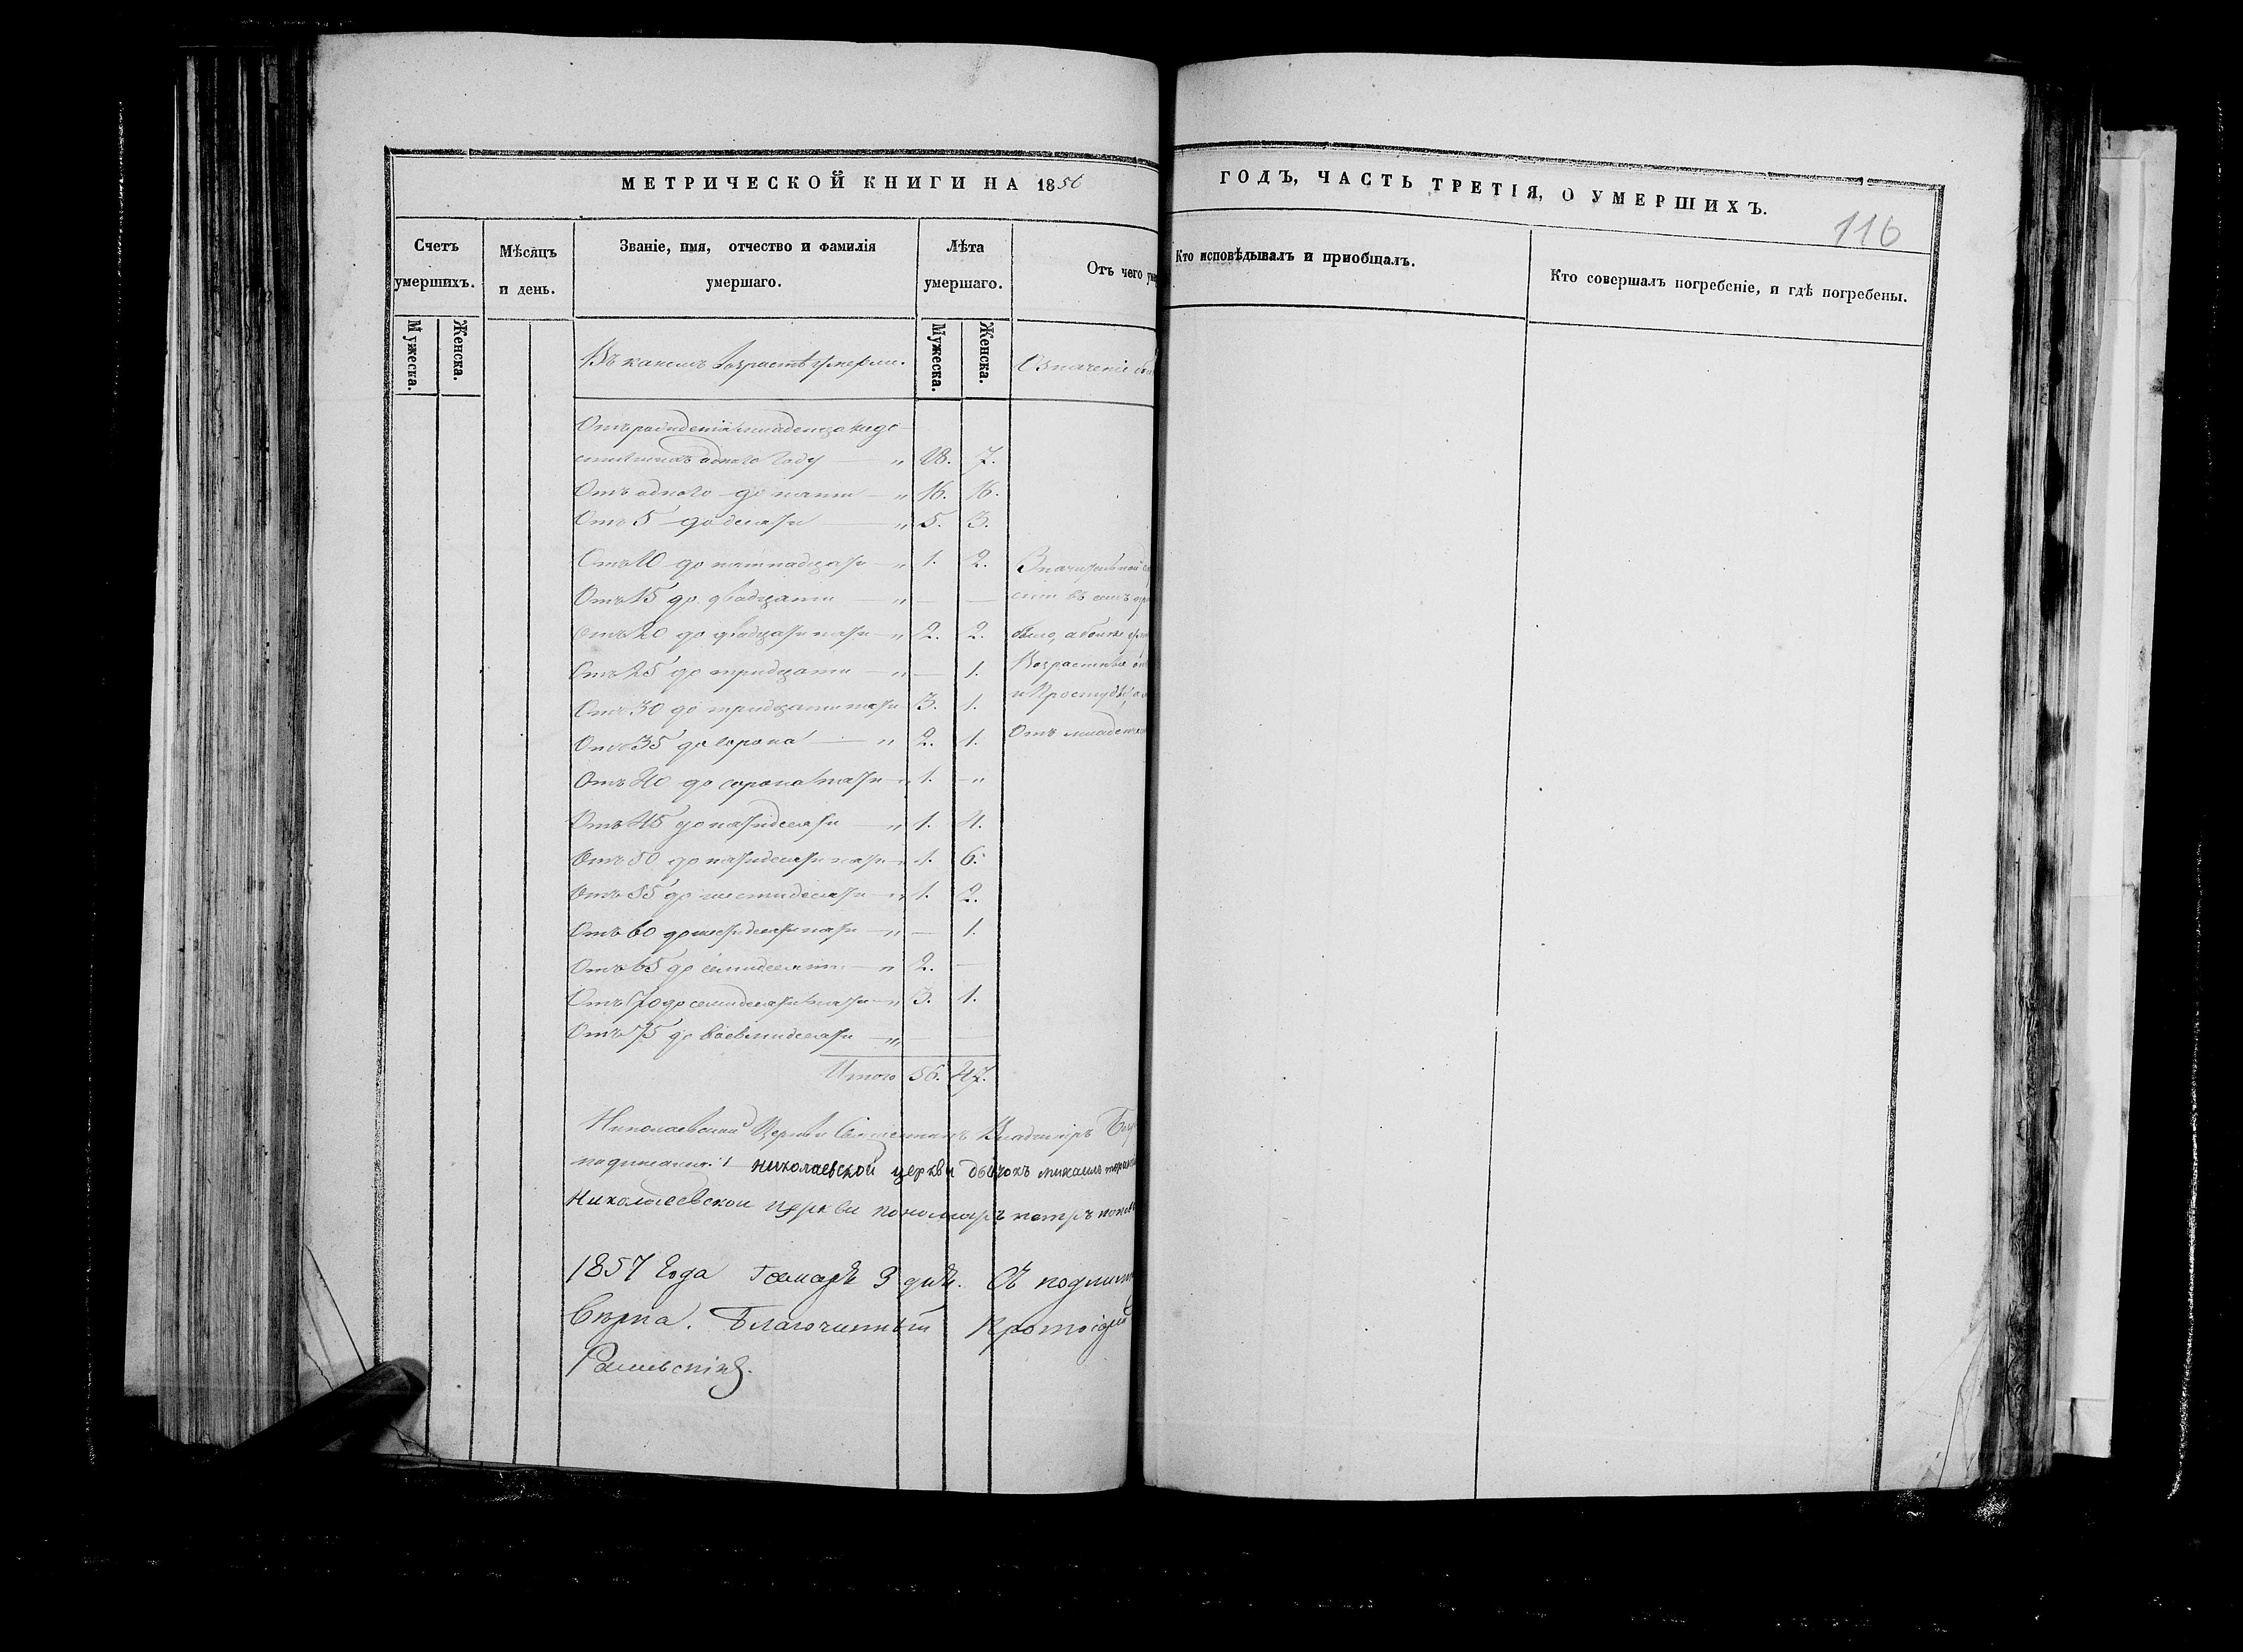 МЕТРИЧЕСКОЙ КНИГИ НА 1856
ГОДЪ, ЧАСТЬ ТРЕТІЯ, О УМЕРШИХЪ.
116
Счетъ умершихъ.
Мѣсяцъ и день.
Званіе, имя, отчество и фамилія умершаго.
Лѣта умершаго.
Отъ чего
Кто исповѣдывалъ и пріобщалъ.
Кто совершалъ погребеніе, и гдѣ погребены.
Мужеска.
Женска.
Мужеска.
Женска.
Въ какомъ возрастѣ умерли.
Означеніе
Отъ рожденія младенца недо
одного году — „ 18. 7.
Отъ одного до пяти — „ 16. 16.
Отъ 5 до десяти — „ 5. 3.
Отъ 10 до пятнадцати — „ 1. 2.
Отъ 15 до двадцати — „ — —
Отъ 20 до двадцати пяти — „ 2. 2.
Отъ 25 до тридцати — „ — 1.
Отъ 30 до тридцати пяти 3. 1.
Отъ 35 до сорока — „ 2. 1.
Отъ 40 до сорока пяти — „ 1. — „
Отъ 45 до пятидесяти — „ 1. 4.
Отъ 50 до пятидесяти пяти — „ 1. 6.
Отъ 55 до шестидесяти — „ 1. 2.
Отъ 60 до шестидесяти пяти — „ — 1.
Отъ 65 до семидесяти — „ 2. —
Отъ 70 до семидесяти пяти — „ 3. 1.
Отъ 75 до восемидесяти — „ — —
Итого 56. 47.
Значительной
въ семъ
было, а болѣе
Возрастные
и простуды,
Отъ
Николаевской Церкви Священникъ Владимиръ
Николаевской церкви дьячокъ михаилъ
Николаевской церкви пономарь петръ
1857 года Генваря 3 дня. Съ
вѣрна. Благочинный Протоіерей